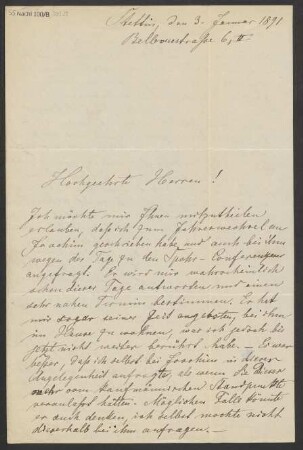 Stettin, den 3. Januar 1891
Bellevuestraße 6, II
Hochgeehrte Herren!
Ich möchte mir Ihnen mitzutheilen
erlauben, dass ich zum Jahreswechsel an
Joachim geschrieben habe und auch bei ihm
wegen der Tage zu den Spohr-Conferenzen
angefragt. Er wird mir wahrscheinlich
schon dieser Tage antworten und einen
sehr nahen Termin bestimmen. Er hat
mir sogar seiner Zeit angeboten, bei ihm
im Hause zu wohnen, was ich jedoch bis
jetzt nicht weiter berührt habe. – Es war
besser, dass ich selbst bei Joachim in dieser
Angelegenheit anfragte, als wenn Sie dieser
mehr vom kaufmännischen Standpunkte
veranlasst hätten. Möglichen Falls könnte
er auch denken, ich selbst möchte nicht
dieserhalb bei ihm anfragen. –